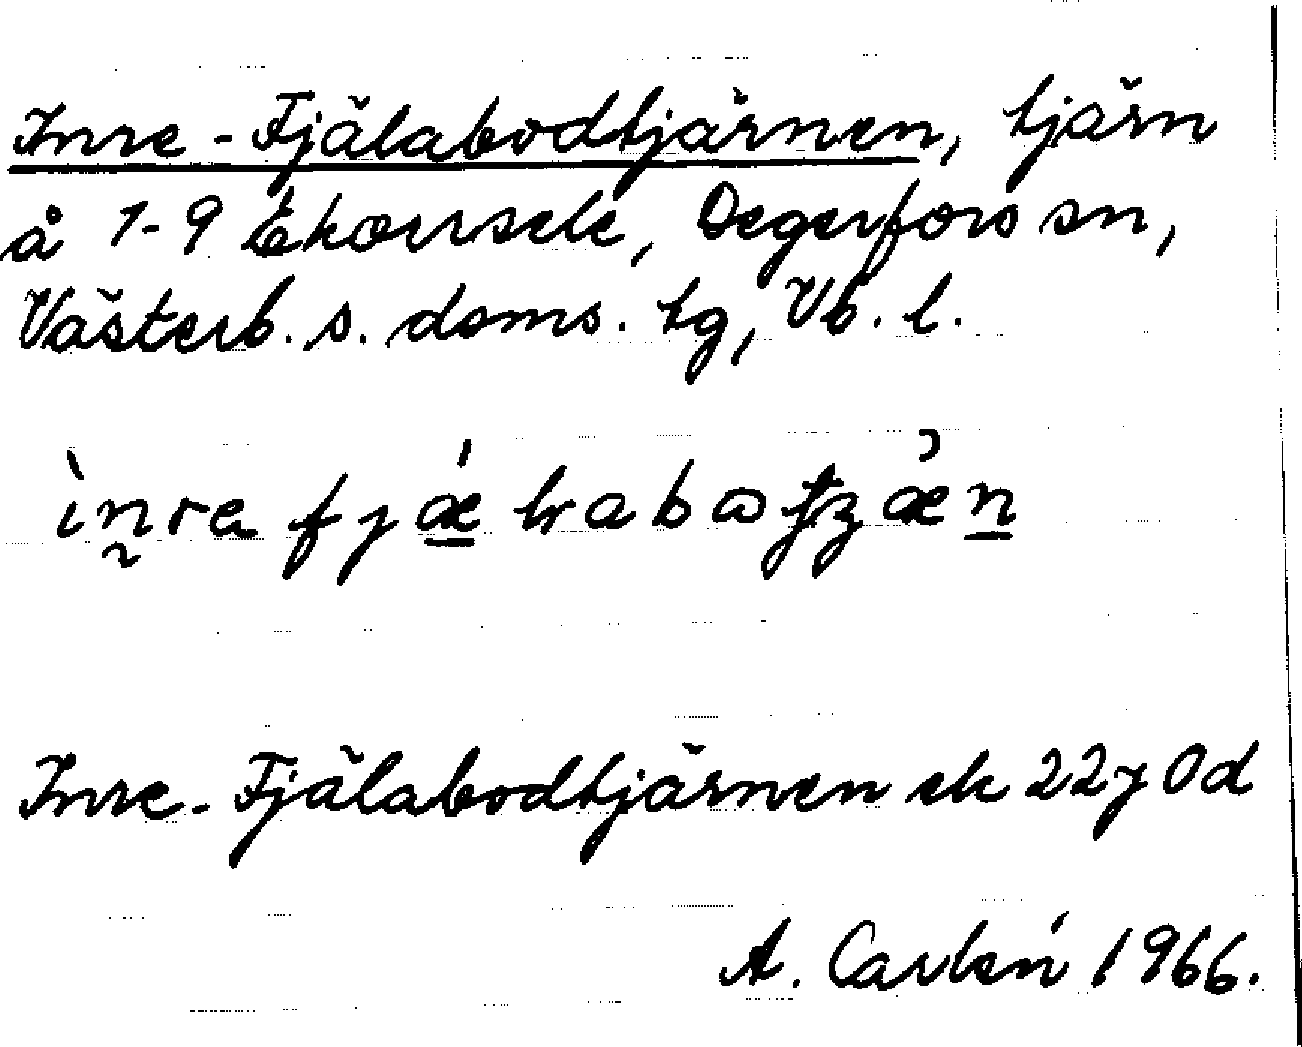 Inre-Fjälabodtjärnen, tjärn
å 1-9 Ekorrsele, Degerfors sn,
Västerb. s. doms. tg, Vb. l.
Inre-Fjälabodtjärnen ek 22y0d
A. Carlén 1966.